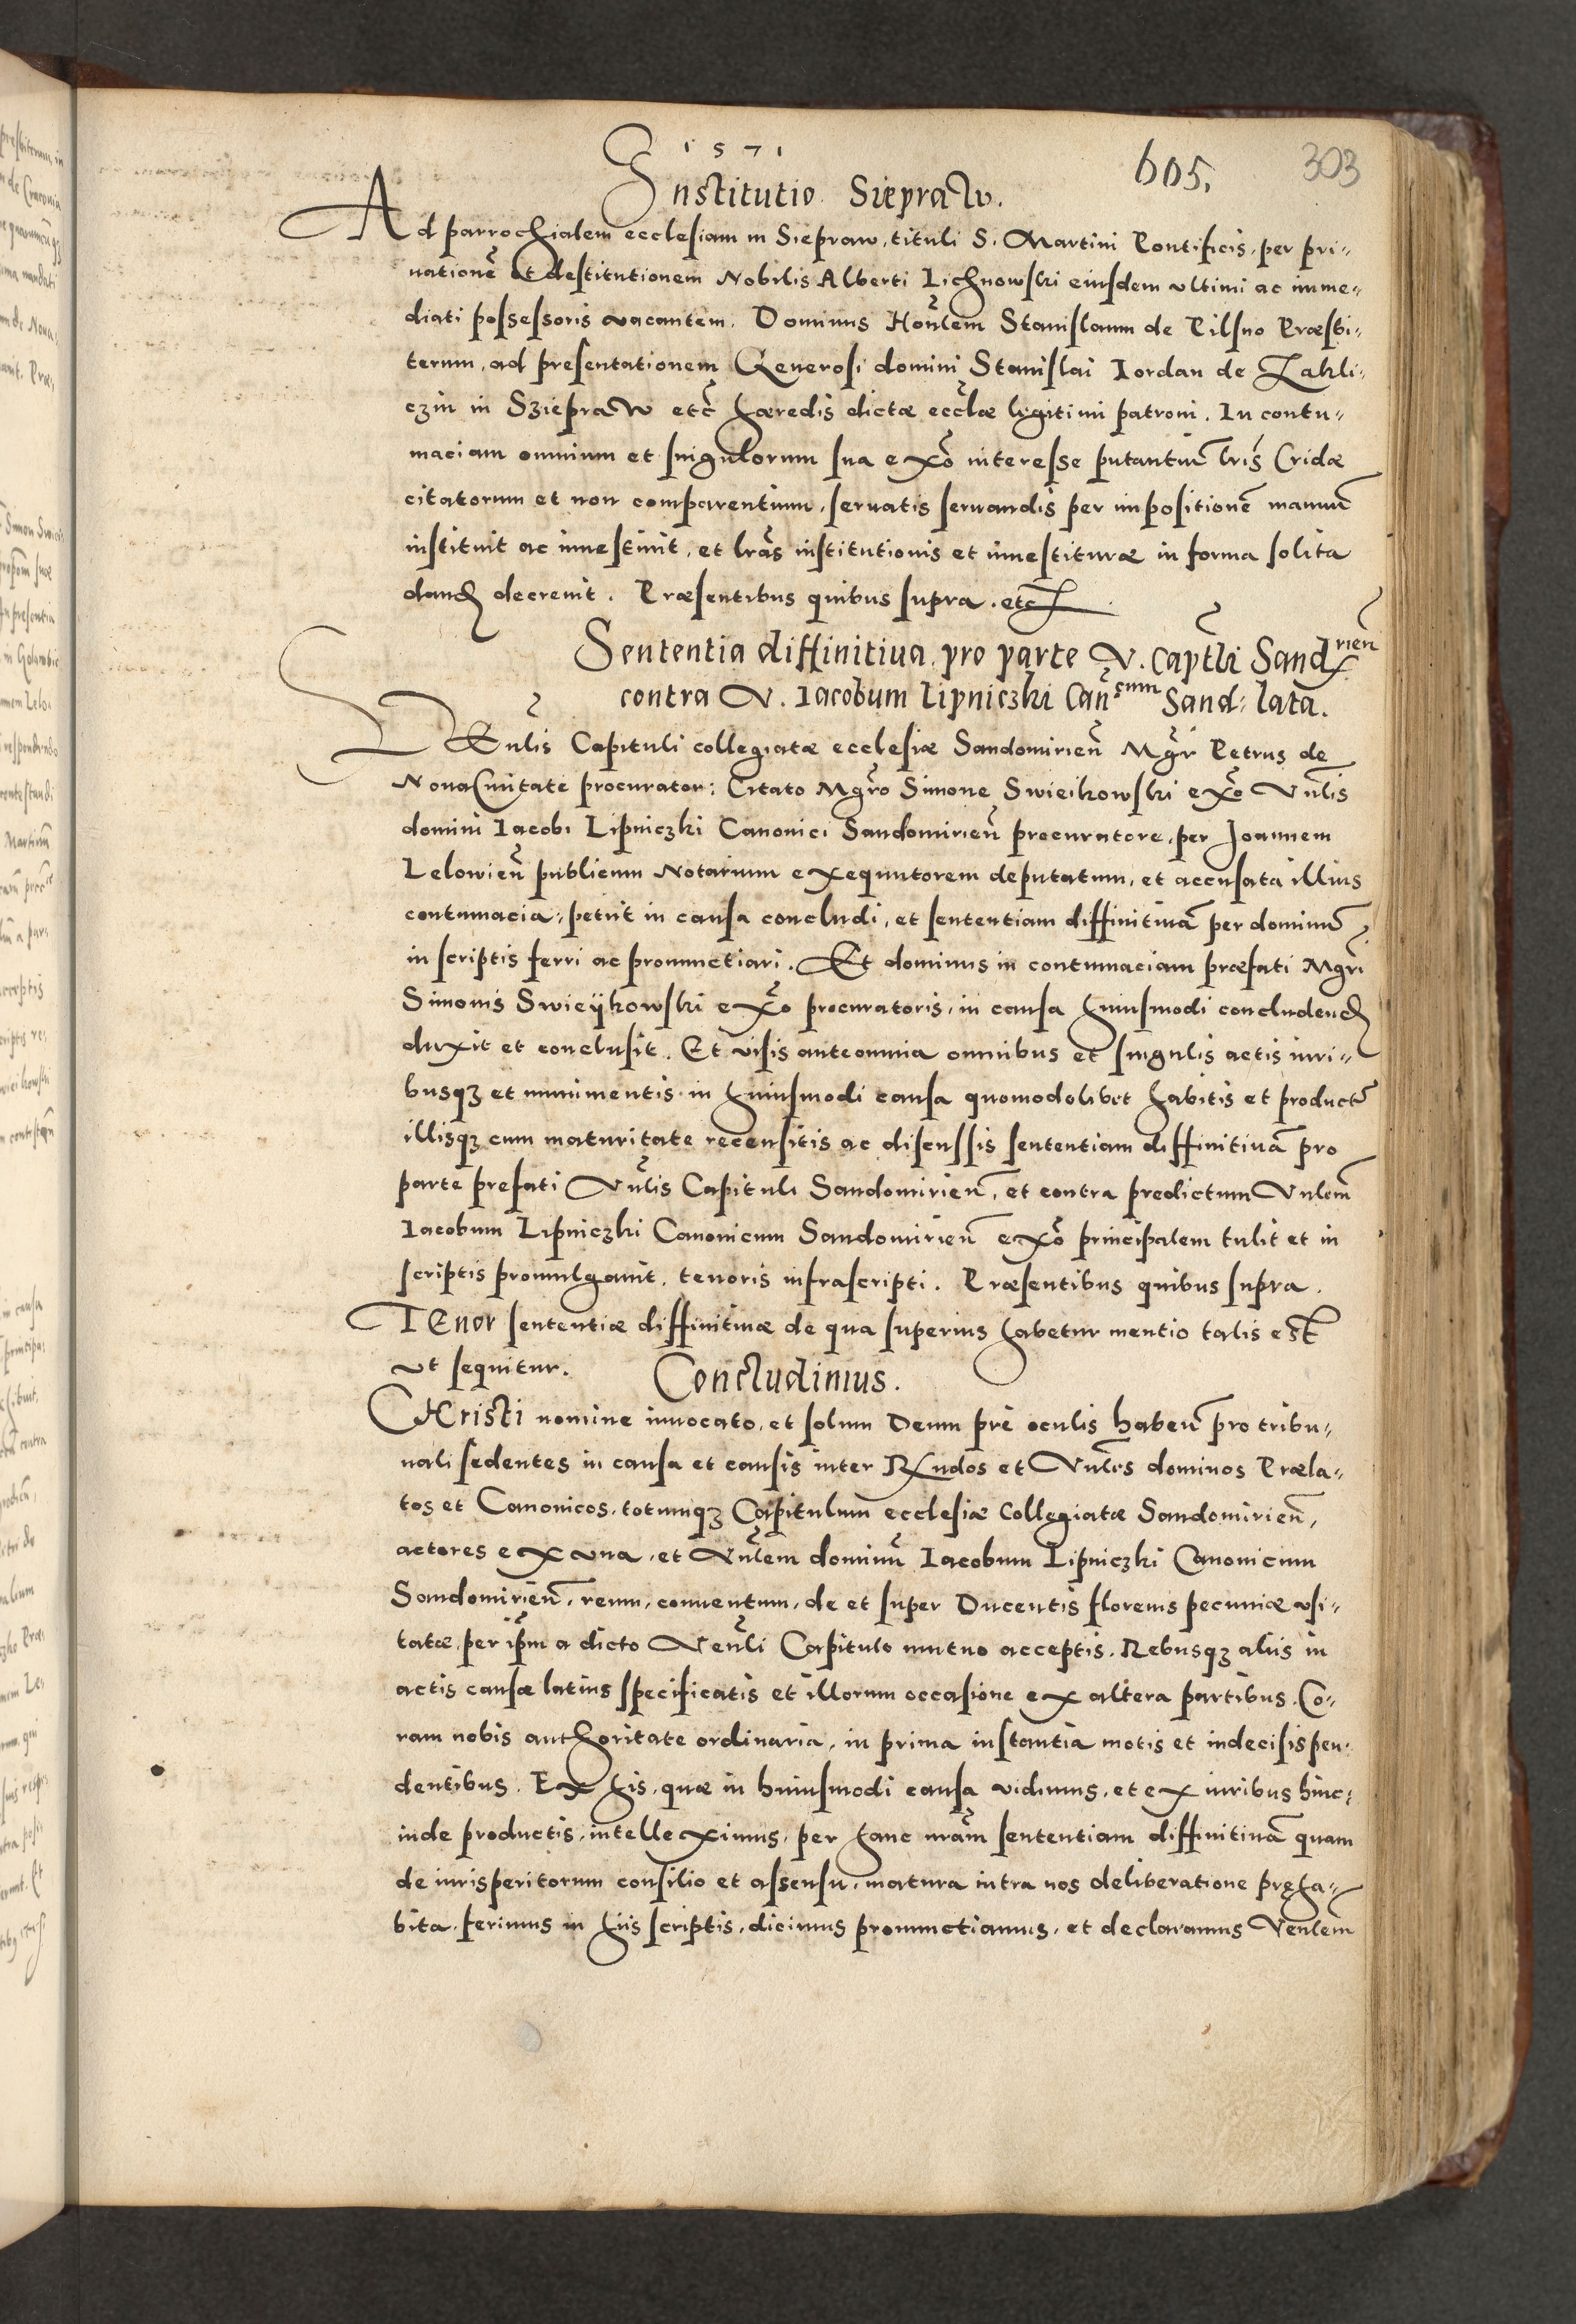 1571
605.
303
Institutio Siepraw.
Ad parrochialem ecclesiam in Siepraw, tituli S. Martini Pontificis, per pri¬
uationẽ et destitutionem Nobilis Alberti Lichnowski eiusdem vltimi ac imme¬
diati possessoris vacantem. Dominus Honlem̃ Stanislaum de Pilsno Præsbi¬
terum, ad presentationem Generosi domini Stanislai Iordan de Zakli¬
czin in Sziepraw etc̃ hæredis dictæ eccłæ legitimi patroni. In contu¬
maciam omnium et singulorum sua exõ interesse putantiũ lris̃ Cridæ
citatorum et non comparentium, seruatis seruandis per impositionẽ manuũ
instituit ac inuestiuit, et lrãs institutionis et inuestituræ in forma solita
dand decreuit. Præsentibus quibus supra. etc
Sententia diffinitiua pro parte V. Captłi Sandrień
contra V. Iacobum Lipniczki Cancum Sand: lata.
VEnłis Capituli collegiatæ ecclesiæ Sandomirień Mgr̃ Petrus de
Noua Ciuitate procurator: Citato Mgrõ Simone Swieikowski exõ Vnłis
domini Iacobi Lipniczki Canonici Sandomirień procuratore, per Joannem
Lelowień publicum Notarium exequutorem deputatum, et accusata illius
contumacia, petiit in causa concludi, et sententiam diffinitiuã per dominũ
in scriptis ferri ac pronunctiari. Et dominus in contumaciam præfati Mgrĩ
Simonis Swieijkowski exõ procuratoris, in causa huiusmodi concludend
duxit et conclusit. Et visis anteomnia omnibus et singulis actis iuri¬
busqz et munimentis in huiusmodi causa quomodolibet habitis et product̃
illisqz cum maturitate recensitis ac discussis sententiam diffinitiuã pro
parte prefati Vnłis Capituli Sandomirień, et contra predictum Vnlem̃
Iacobum Lipniczki Canonicum Sandomirień exõ principalem tulit et in
scriptis promulgauit, tenoris infrascripti. Præsentibus quibus supra.
TEnor sententiæ diffinitiuæ de qua superius habetur mentio talis est
vt sequitur. Concludimus.
CHristi nomine inuocato, et solum Deum præ oculis habeñ pro tribu¬
nali sedentes in causa et causis inter Rxndos et Vnłes dominos Præla¬
tos et Canonicos, totumqz Capitulum ecclesiæ Collegiatæ Sandomirień,
actores ex vna, et Vnłem dominũ Iacobum Lipniczki Canonicum
Sandomirień, reum, conuentum, de et super Ducentis florenis pecuniæ vsi¬
tatæ, per ipm̃ a dicto Venłi Capitulo mutuo acceptis, Rebusqz aliis in
actis causæ latius specificatis et illorum occasione ex altera partibus. Co¬
ram nobis authoritate ordinaria, in prima instantia motis et indecisis pen¬
dentibus. Ex his, quæ in huiusmodi causa vidimus, et ex iuribus hinc¬
inde productis, intelleximus, per hanc nrãm sententiam diffinitiuã quam
de iurisperitorum consilio et assensu, matura intra nos deliberatione pręha¬
bita, ferimus in hiis scriptis, dicimus pronunctiamus, et declaramus Venlem̃